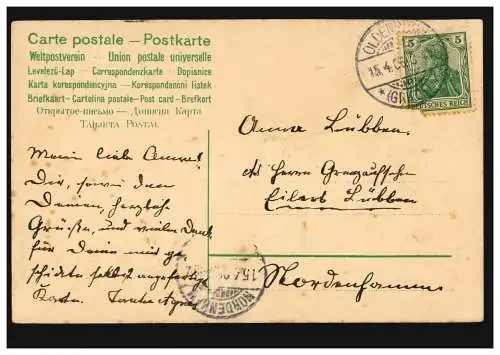 Carte postale — Postkarte
Weltpostverein - Union postale universelle
Levelező-Lap - Correspondenzkarte - Dopisnice
Karta korespondencyjna - Korespondenční lístek
Briefkaart - Cartolina postale - Post card - Brefkort
Открытое письмо — Дописна Карта
TARJETA POSTAL
5 5
DEUTSCHES REICH
15.4.
Anna Lübben.
Herrn
Eilert Lübben
Nordenhamm
Mein liebe Anna!
Dir, sowie den
Deinen, herzlich
Grüße, und vielen Dank
für Deine mir ge-
schickte selbst angefertigte
Karte. Tante Agnes
NORDENHAM